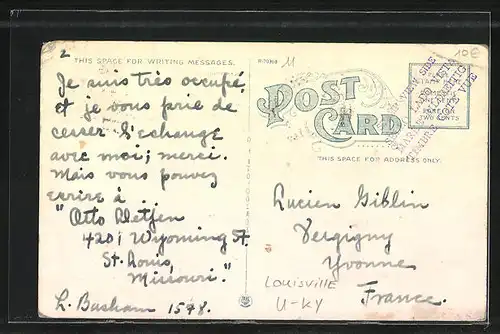 2
THIS SPACE FOR WRITING MESSAGES.
11
10€
POST CARD
THIS SPACE FOR ADDRESS ONLY.
TWO CENTS
Je suis très occupé
et je vous prie de
cesser l'echange
avec moi; merci.
Mais vous pouvez
ecrire à
"Otto Dietjen
4201 Wyoming St.
St. Louis,
Missouri."
L. Basham 1578.
Lucien Giblin
Vergigny
Yvonne
France.
Louisville
U-KY